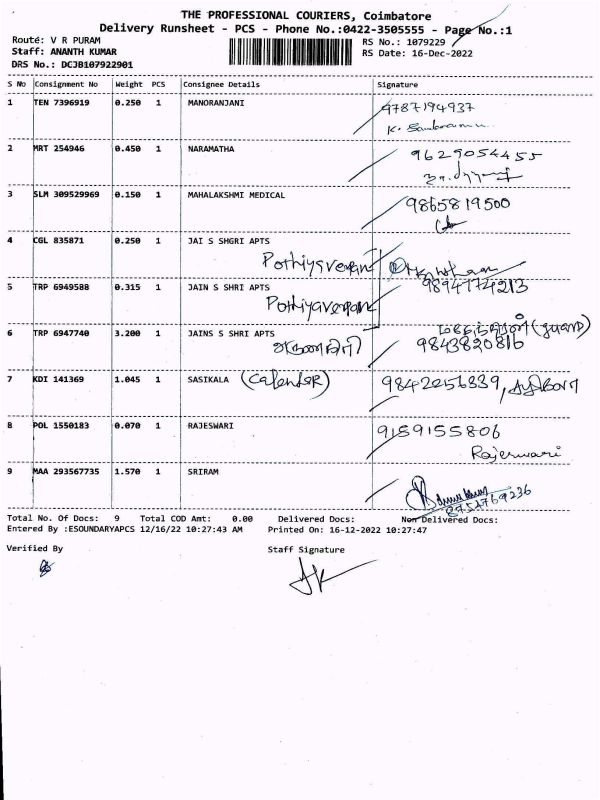 THE PROFESSIONAL COURIERS, Coimbatore
Delivery Runsheet - PCS - Phone No.:0422-3505555 - Page No.:1
Route: V R PURAM
Staff: ANANTH KUMAR
DRS No.: DCJB107922901
RS No.: 1079229
RS Date: 16-Dec-2022
S No Consignment No Weight PCS Consignee Details Signature
1 TEN 7396919 0.250 1 MANORANJANI 9787194937
2 MRT 254946 0.450 1 NARAMATHA 9629054455
3 SLM 309529969 0.150 1 MAHALAKSHMI MEDICAL 9865819500
4 CGL 835871 0.250 1 JAI S SHGRI APTS
5 TRP 6949588 0.315 1 JAIN S SHRI APTS 9894174213
6 TRP 6947740 3.200 1 JAINS S SHRI APTS (guard)
9843820816
7 KDI 141369 1.045 1 SASIKALA (Calender) 9842256839,
8 POL 1550183 0.070 1 RAJESWARI 9159155806
Rajeswari
9 MAA 293567735 1.570 1 SRIRAM
8754769236
Total No. Of Docs: 9 Total COD Amt: 0.00 Delivered Docs: Non Delivered Docs:
Entered By :ESOUNDARYAPCS 12/16/22 10:27:43 AM Printed On: 16-12-2022 10:27:47
Verified By Staff Signature